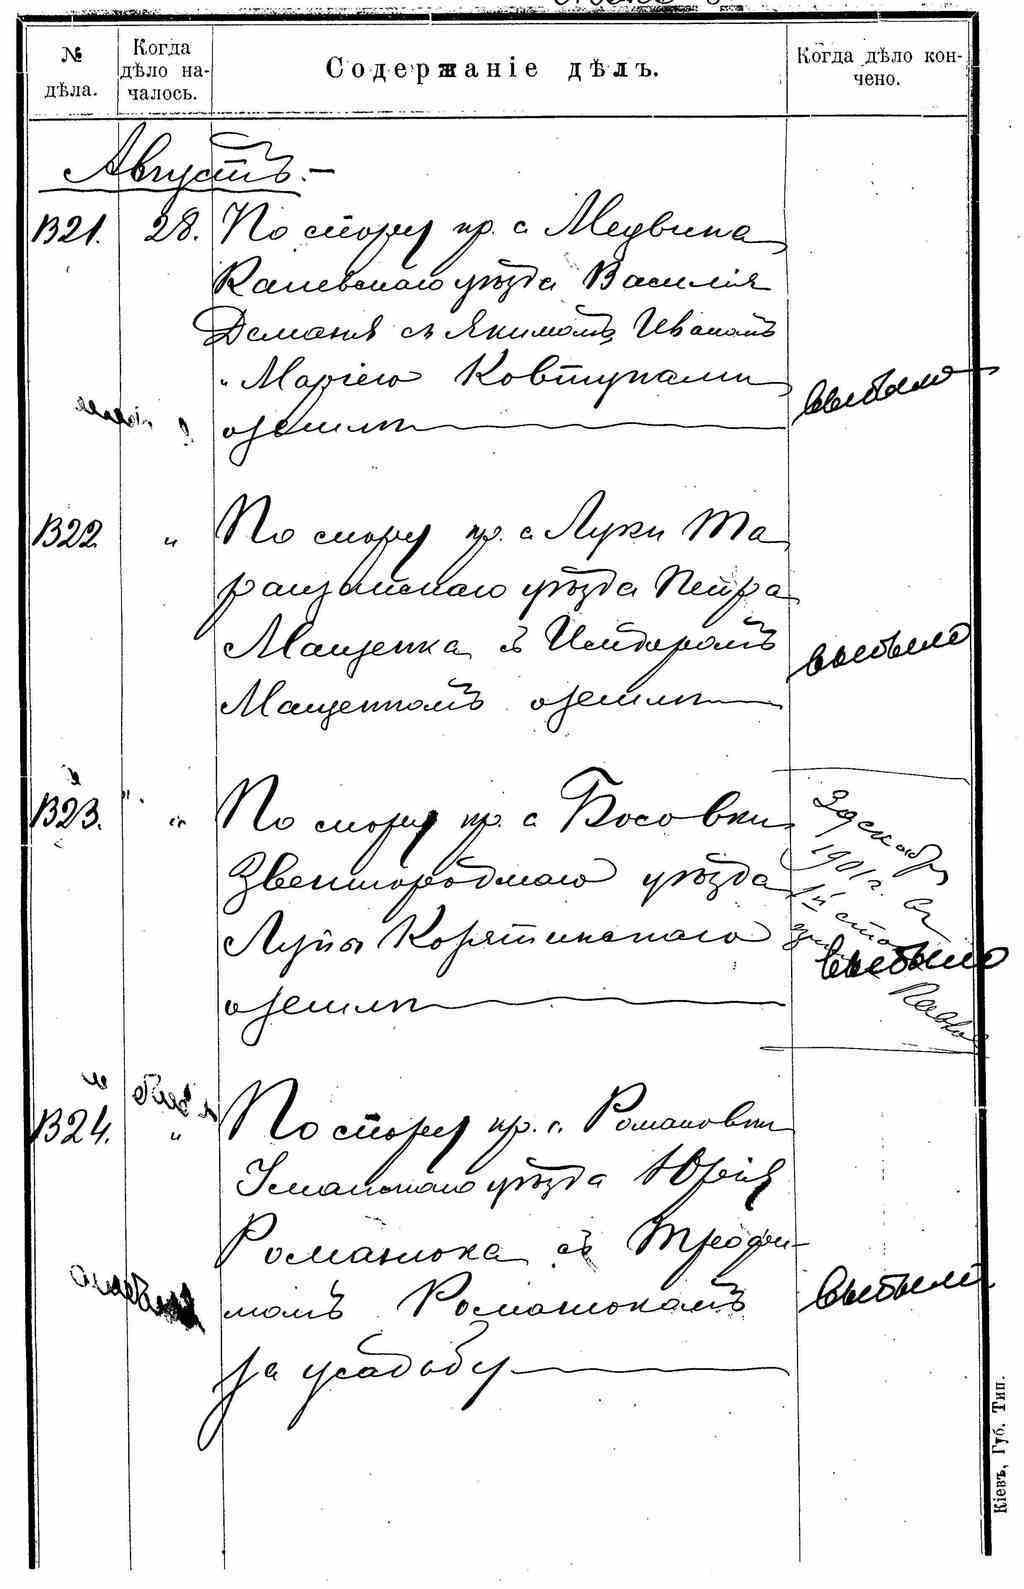 №
дѣла.
Когда
дѣло на-
чалось.
Содержаніе дѣлъ.
Когда дѣло кон-
чено.
Августъ.-
1321. 28. По спору кр. с. Медвина
Каневскаго уѣзда Василія
Деманя съ Якимомъ, Иваномъ
и Маріею Ковтунами
о землѣ
выбыло
1322 " По спору кр. с. Луки Та
ращанскаго уѣзда Петра
Мащенка съ
Мащенкомъ о землѣ
выбыло
1323. " По спору кр. с. Босовки
Звенигородскаго уѣзда
Лупы Корятинскаго
о землѣ
3 декабр
1901 г.
выбыло
1324. " По спору кр. с. Романовки
Уманскаго уѣзда Юрія
Романюка съ Трофи-
момъ Романюкомъ
за усадьбу
выбыло
Кіевъ, Губ. Тип.